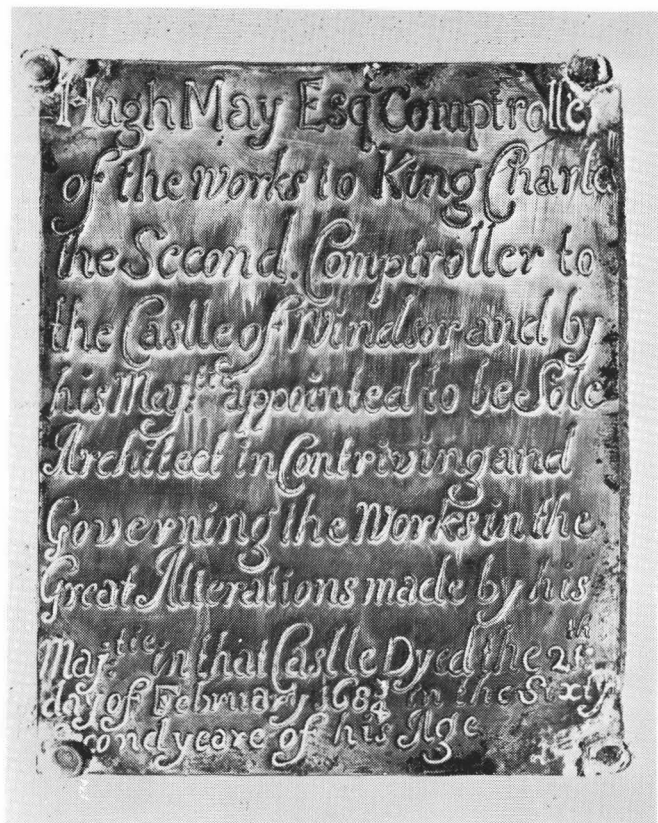 Hugh May Esqr Comptrolle
of the works to King Charles
the Second. Comptroller to
the Castle of Windsor and by
his Maj:tie appointed to be Sole
Architect in Contriving and
Governing the Works in the
Great Alterations made by his
Maj:tie in that Castle Dyed the 21th
day of February 1683/4 in the Sixty
Second yeare of his Age